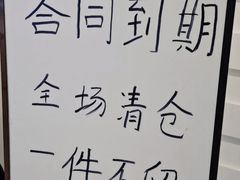 合同到期
全场清仓
一件不留